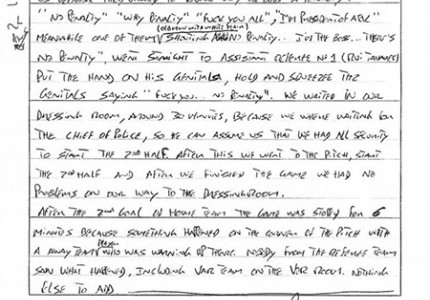 "NO PENALTY" "WHY PENALTY" "FUCK YOU ALL", I'M PRESIDENT OF
MEANWHILE ONE OF THEM SHOUTING NO PENALTY... I'M THE BOSS... THERE'S
NO PENALTY", WENT STRAIGHT TO ASSISTANT REFEREE Nº1
PUT THE HAND ON HIS GENITALS, HOLD AND SQUEEZE THE
GENITALS SAYING "FUCK YOU... NO PENALTY". WE WAITED IN OUR
DRESSING ROOM, AROUND 30 MINUTES, BECAUSE WE WHERE WAITING FOR
THE CHIEF OF POLICE, SO HE CAN ASSUME US THAT WE HAD ALL SECURITY
TO START THE 2nd HALF. AFTER THIS WE WENT TO THE PITCH, START
THE 2nd HALF AND AFTER WE FINISHED THE GAME WE HAD NO
PROBLEMS ON OUR WAY TO THE DRESSING ROOM.
AFTER THE 2nd GOAL OF HOME TEAM THE GAME WAS STOPPED FOR 6
MINUTES BECAUSE SOMETHING HAPPENED ON THE OF THE PITCH WITH
A AWAY TEAM PLAYER WHO WAS WARMING UP THERE. NOBODY FROM THE REFEREE TEAM
SAW WHAT HAPPENED, INCLUDING VAR TEAM ON THE VAR ROOM. NOTHING
ELSE TO ADD